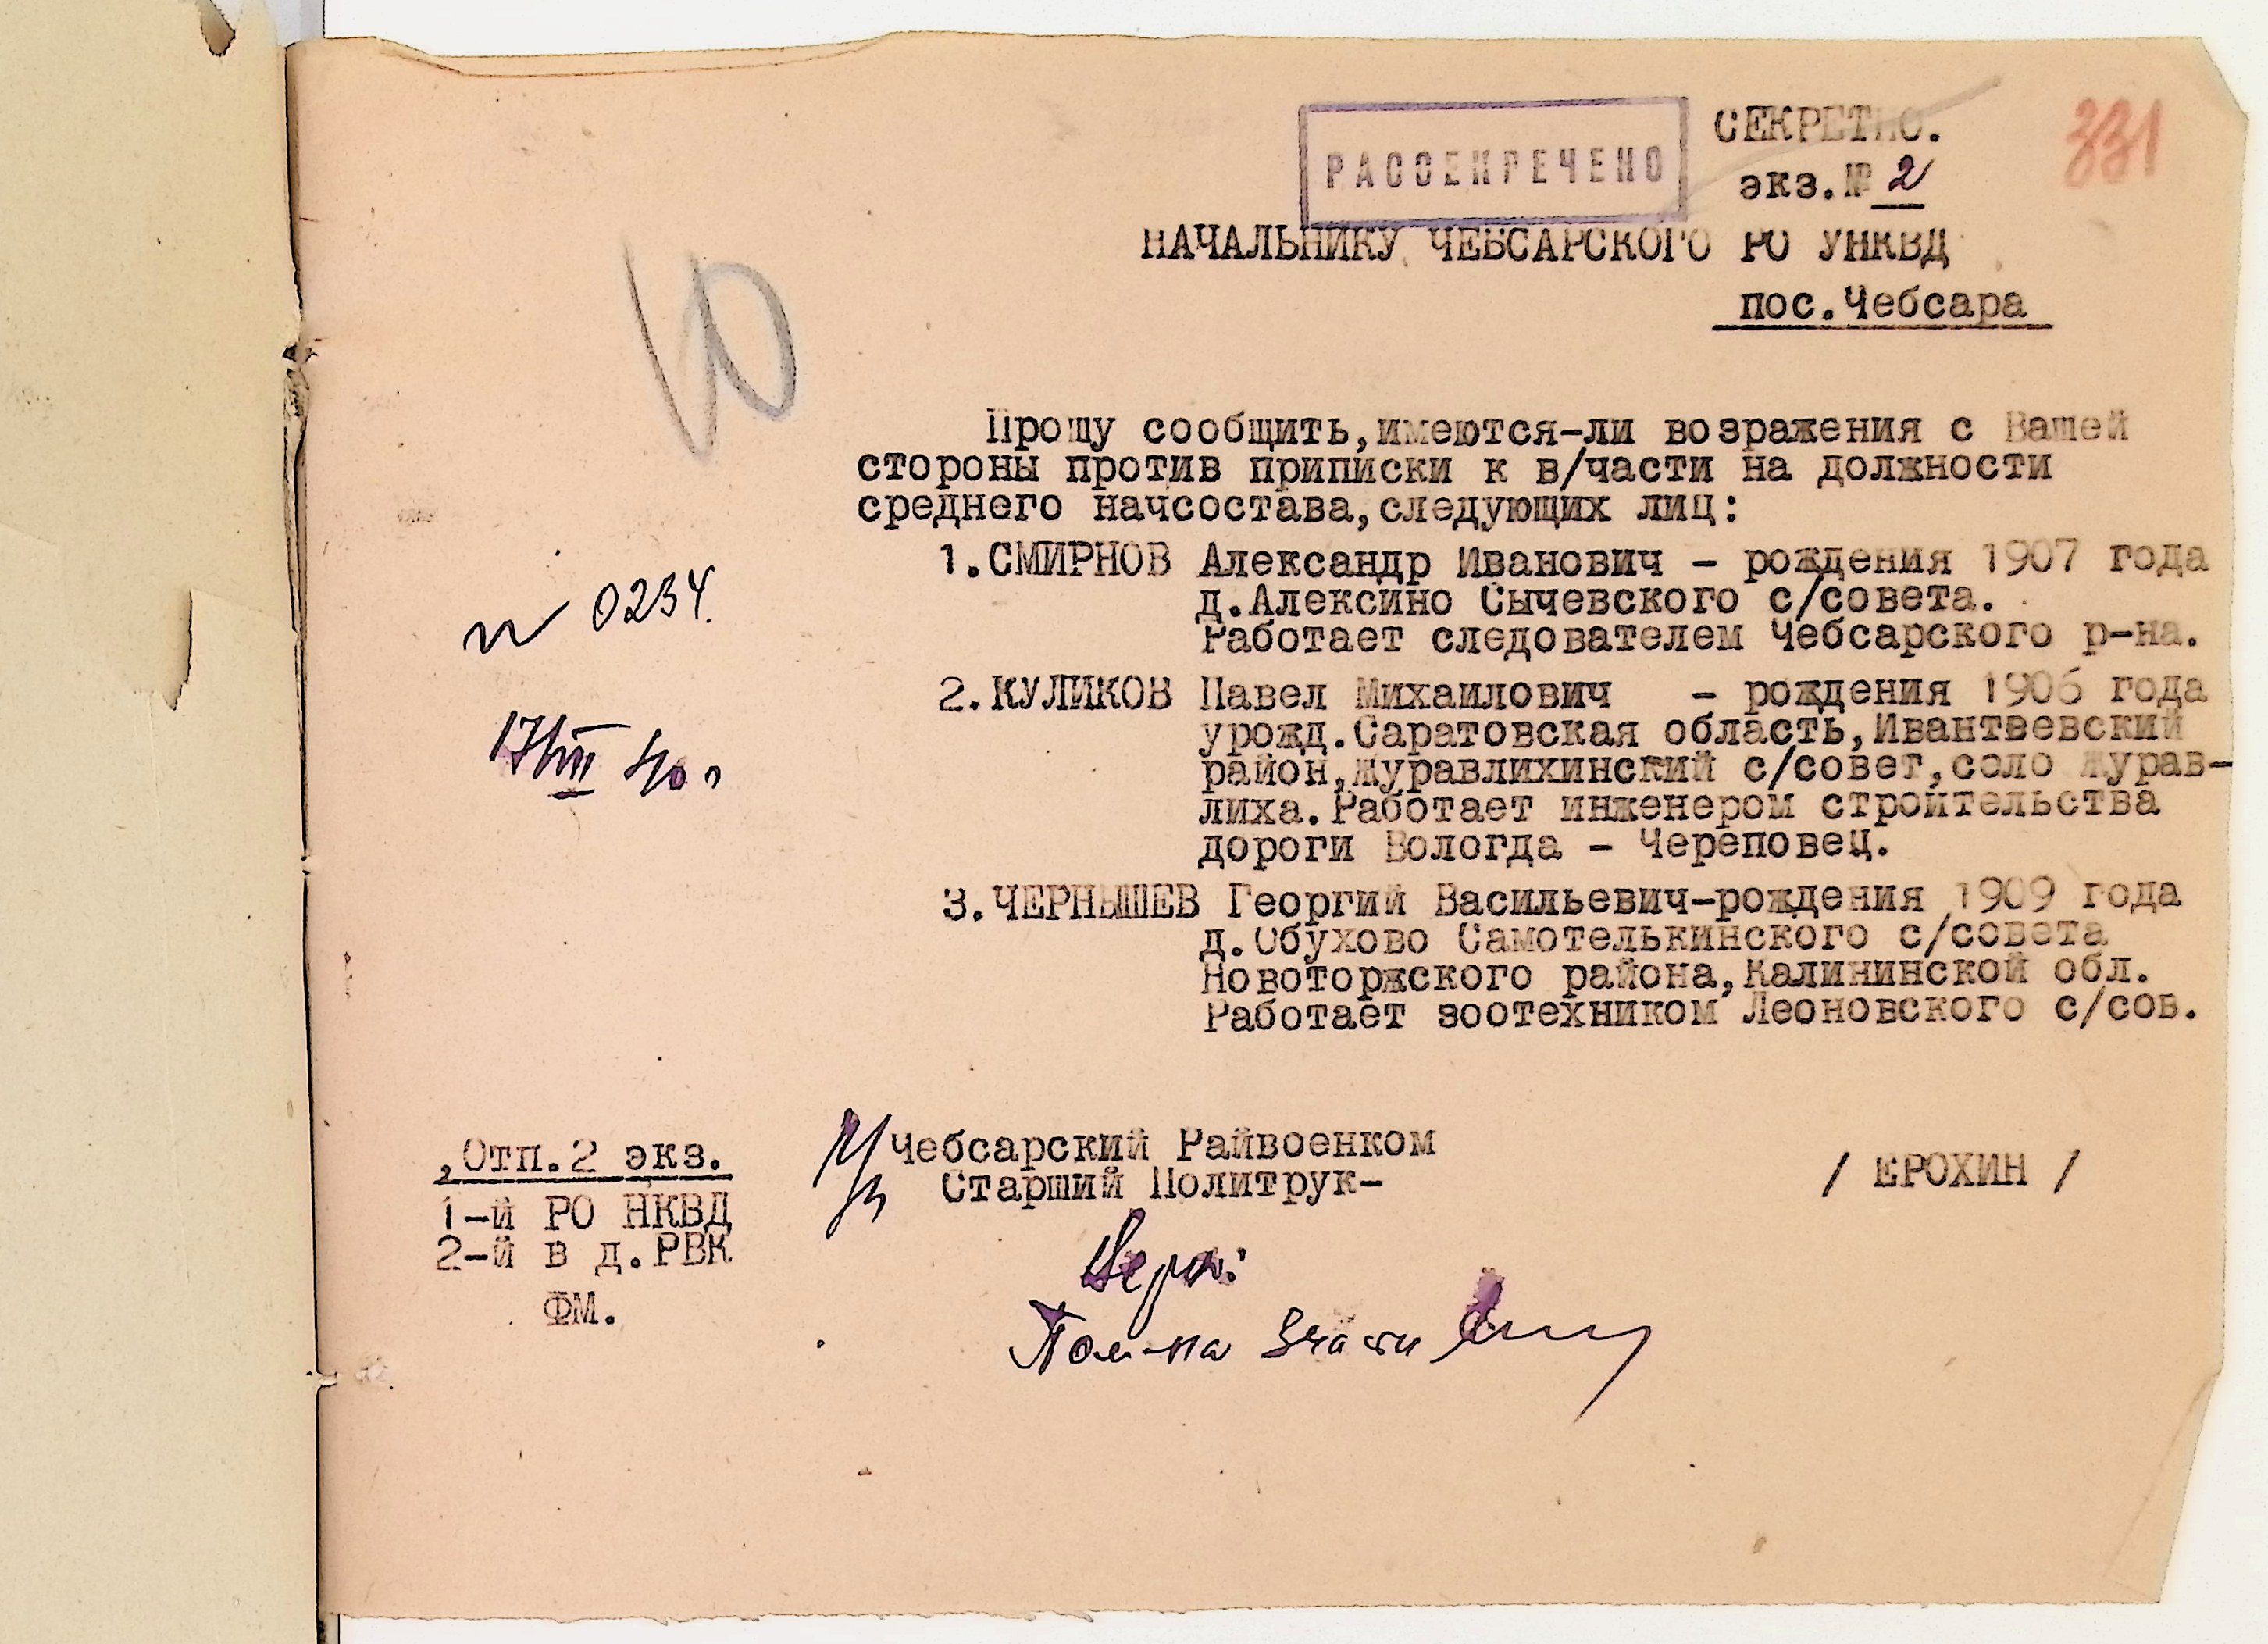 РАССЕКРЕЧЕНО
СЕКРЕТНО.
331
экз.№ 2
НАЧАЛЬНИКУ ЧЕБСАРСКОГО РО УНКВД
пос.Чебсара
Прошу сообщить,имеются-ли возражения с Вашей
стороны против приписки к в/части на должности
среднего начсостава,следующих лиц:
1.СМИРНОВ Александр Иванович - рождения 1907 года
д.Алексино Сычевского с/совета.
Работает следователем Чебсарского р-на.
№ 0234.
2.КУЛИКОВ Павел Михаилович - рождения 1906 года
урожд.Саратовская область,Ивантеевский
район,Журавлихинский с/совет,село Журав-
лиха.Работает инженером строительства
дороги Вологда - Череповец.
17/VII 40 г
3.ЧЕРНЫШЕВ Георгий Васильевич-рождения 1909 года
д.Обухово Самотелькинского с/совета
Новоторжского района,Калининской обл.
Работает зоотехником Леоновского с/сов.
Чебсарский Райвоенком
Старший Политрук-
/ ЕРОХИН /
Отп.2 экз.
1-й РО НКВД
2-й в д.РВК
ФМ.
Верно:
Пом-на 3 части